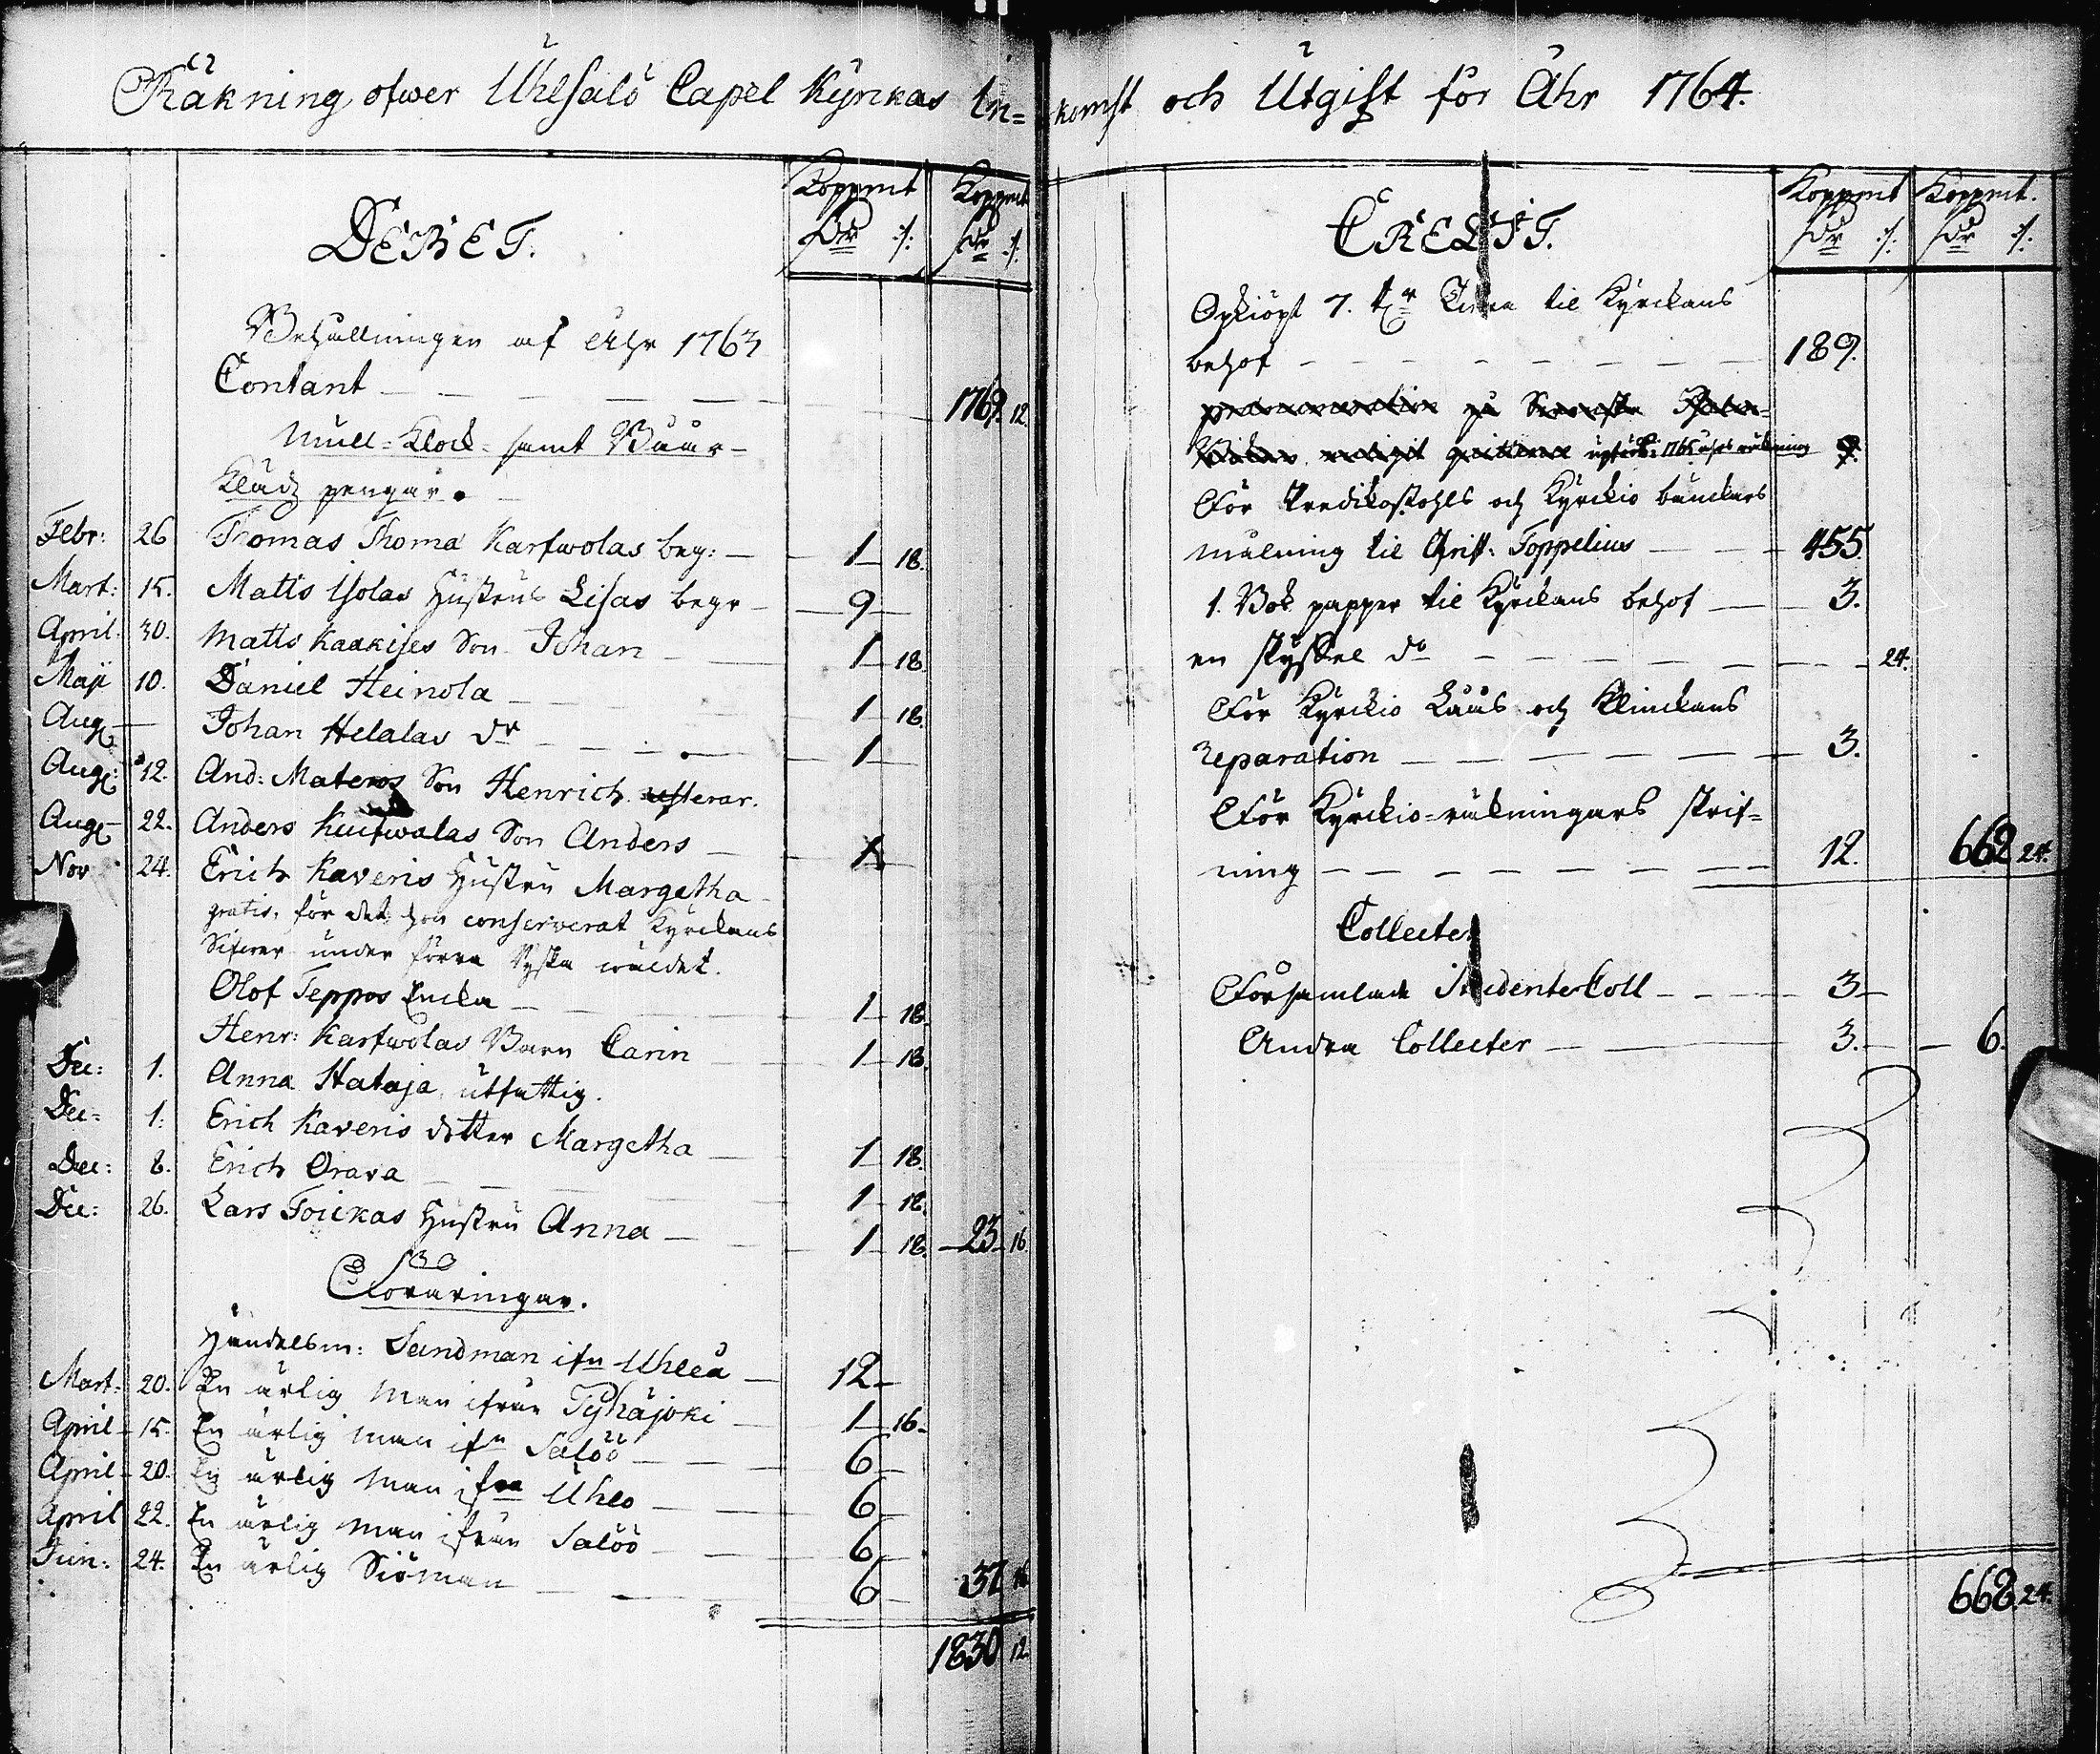 Räkning öfwer Uhlsalö Capel Kyrkas In=
DEBET.
Koppmt Koppmt
dr :/: dr :/:
Behållningen af Åhr 1763
Contant 1769. 12.
Mull=Klock= samt Båår-
Kläds pengar.
Febr: 26 Thomas Thoma Karfwolas beg: 1 18.
Mart: 15. Matts Isolas Hustrus Lisas begr 9
April. 30. Matts Kaakises Son Johan 1 18.
Maji 10. Daniel Heinola 1 18.
Aug Johan Helalas dr 1
Aug: 12. And: Materos Son Henrich
Aug 22. Anders Son Anders
Nov 24. Erich Kaveris Hustru Margetha
gratis, för det hon conserverat Kyrckans
under förra Ryska wäldet.
Olof Teppos Encka 1 18.
Henr: Karfwolas Barn Carin 1 18.
Dec: 1. Anna Hataja, utfattig.
Dec: 1. Erich Kaveris dotter Margetha 1 18.
Dec: 8. Erich Orava 1 18.
Dec: 26. Lars Toickas Hustru Anna 1 18. 23 16
Föräringar.
Handelsm: Sandman ifn Uhleå 12
Mart: 20. En ärlig Man ifrån Pyhäjoki 1 16.
April 15. En ärlig man ifn Salöö 6
April 20. En ärlig Man ifrn Uhlo 6
April 22. En ärlig Man ifrån Salöö 6
Jun: 24. En ärlig Siöman 6 37 16
1830 12
komst och Utgift för Åhr 1764.
CREDIT.
Koppmt Koppmt.
dr :/: dr :/:
Opkiöpt 7. tr Tiära til Kyrckans
behof 189.
på Svenska
1765 åhrs räkning
För Predikostohls och Kyrckio bänckars
målning til Toppelius 455.
1. Bok papper til Kyrckans behof 3.
en do 24.
För Kyrckio Låås och Klinckans
reparation 3.
För Kyrckio=räkningars skrif=
ning 12. 662 24.
Collecter
Församlade Studente Coll 3
Andra Collecter 3. 6.
668. 24.